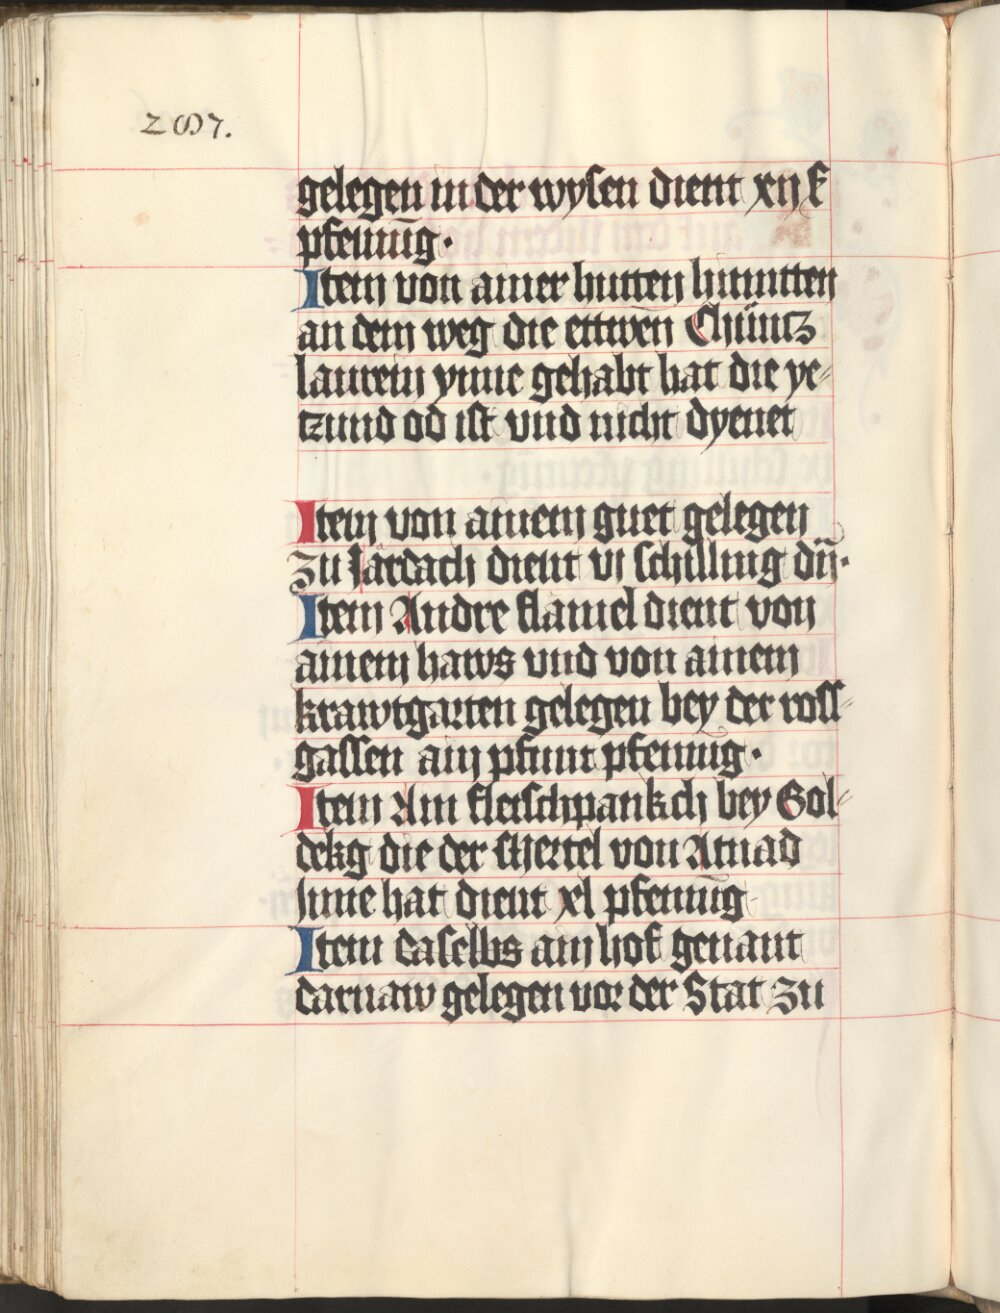 gelegen in der wysen dient xij k
pfennīg.
Item von ainer hutten hinmitten
an dem weg die ettwen Chüntz
laurein ynne gehabt hat die ye⸗
tzund od ist vnd nicht dyenet
Item von ainem guet gelegen
zu dient vi schilling dn̄.
Item Andre flamel dient von
ainem haws vnd von ainem
krawtgarten gelegen bey der ross⸗
gassen ain pfunt pfennīg.
Item Ain fleischpankch bey Gol⸗
dekg die der von Atnad
Inne hat dient xl pfennīg
Item daselbs ain hof genant
darnaw gelegen vor der Stat zu